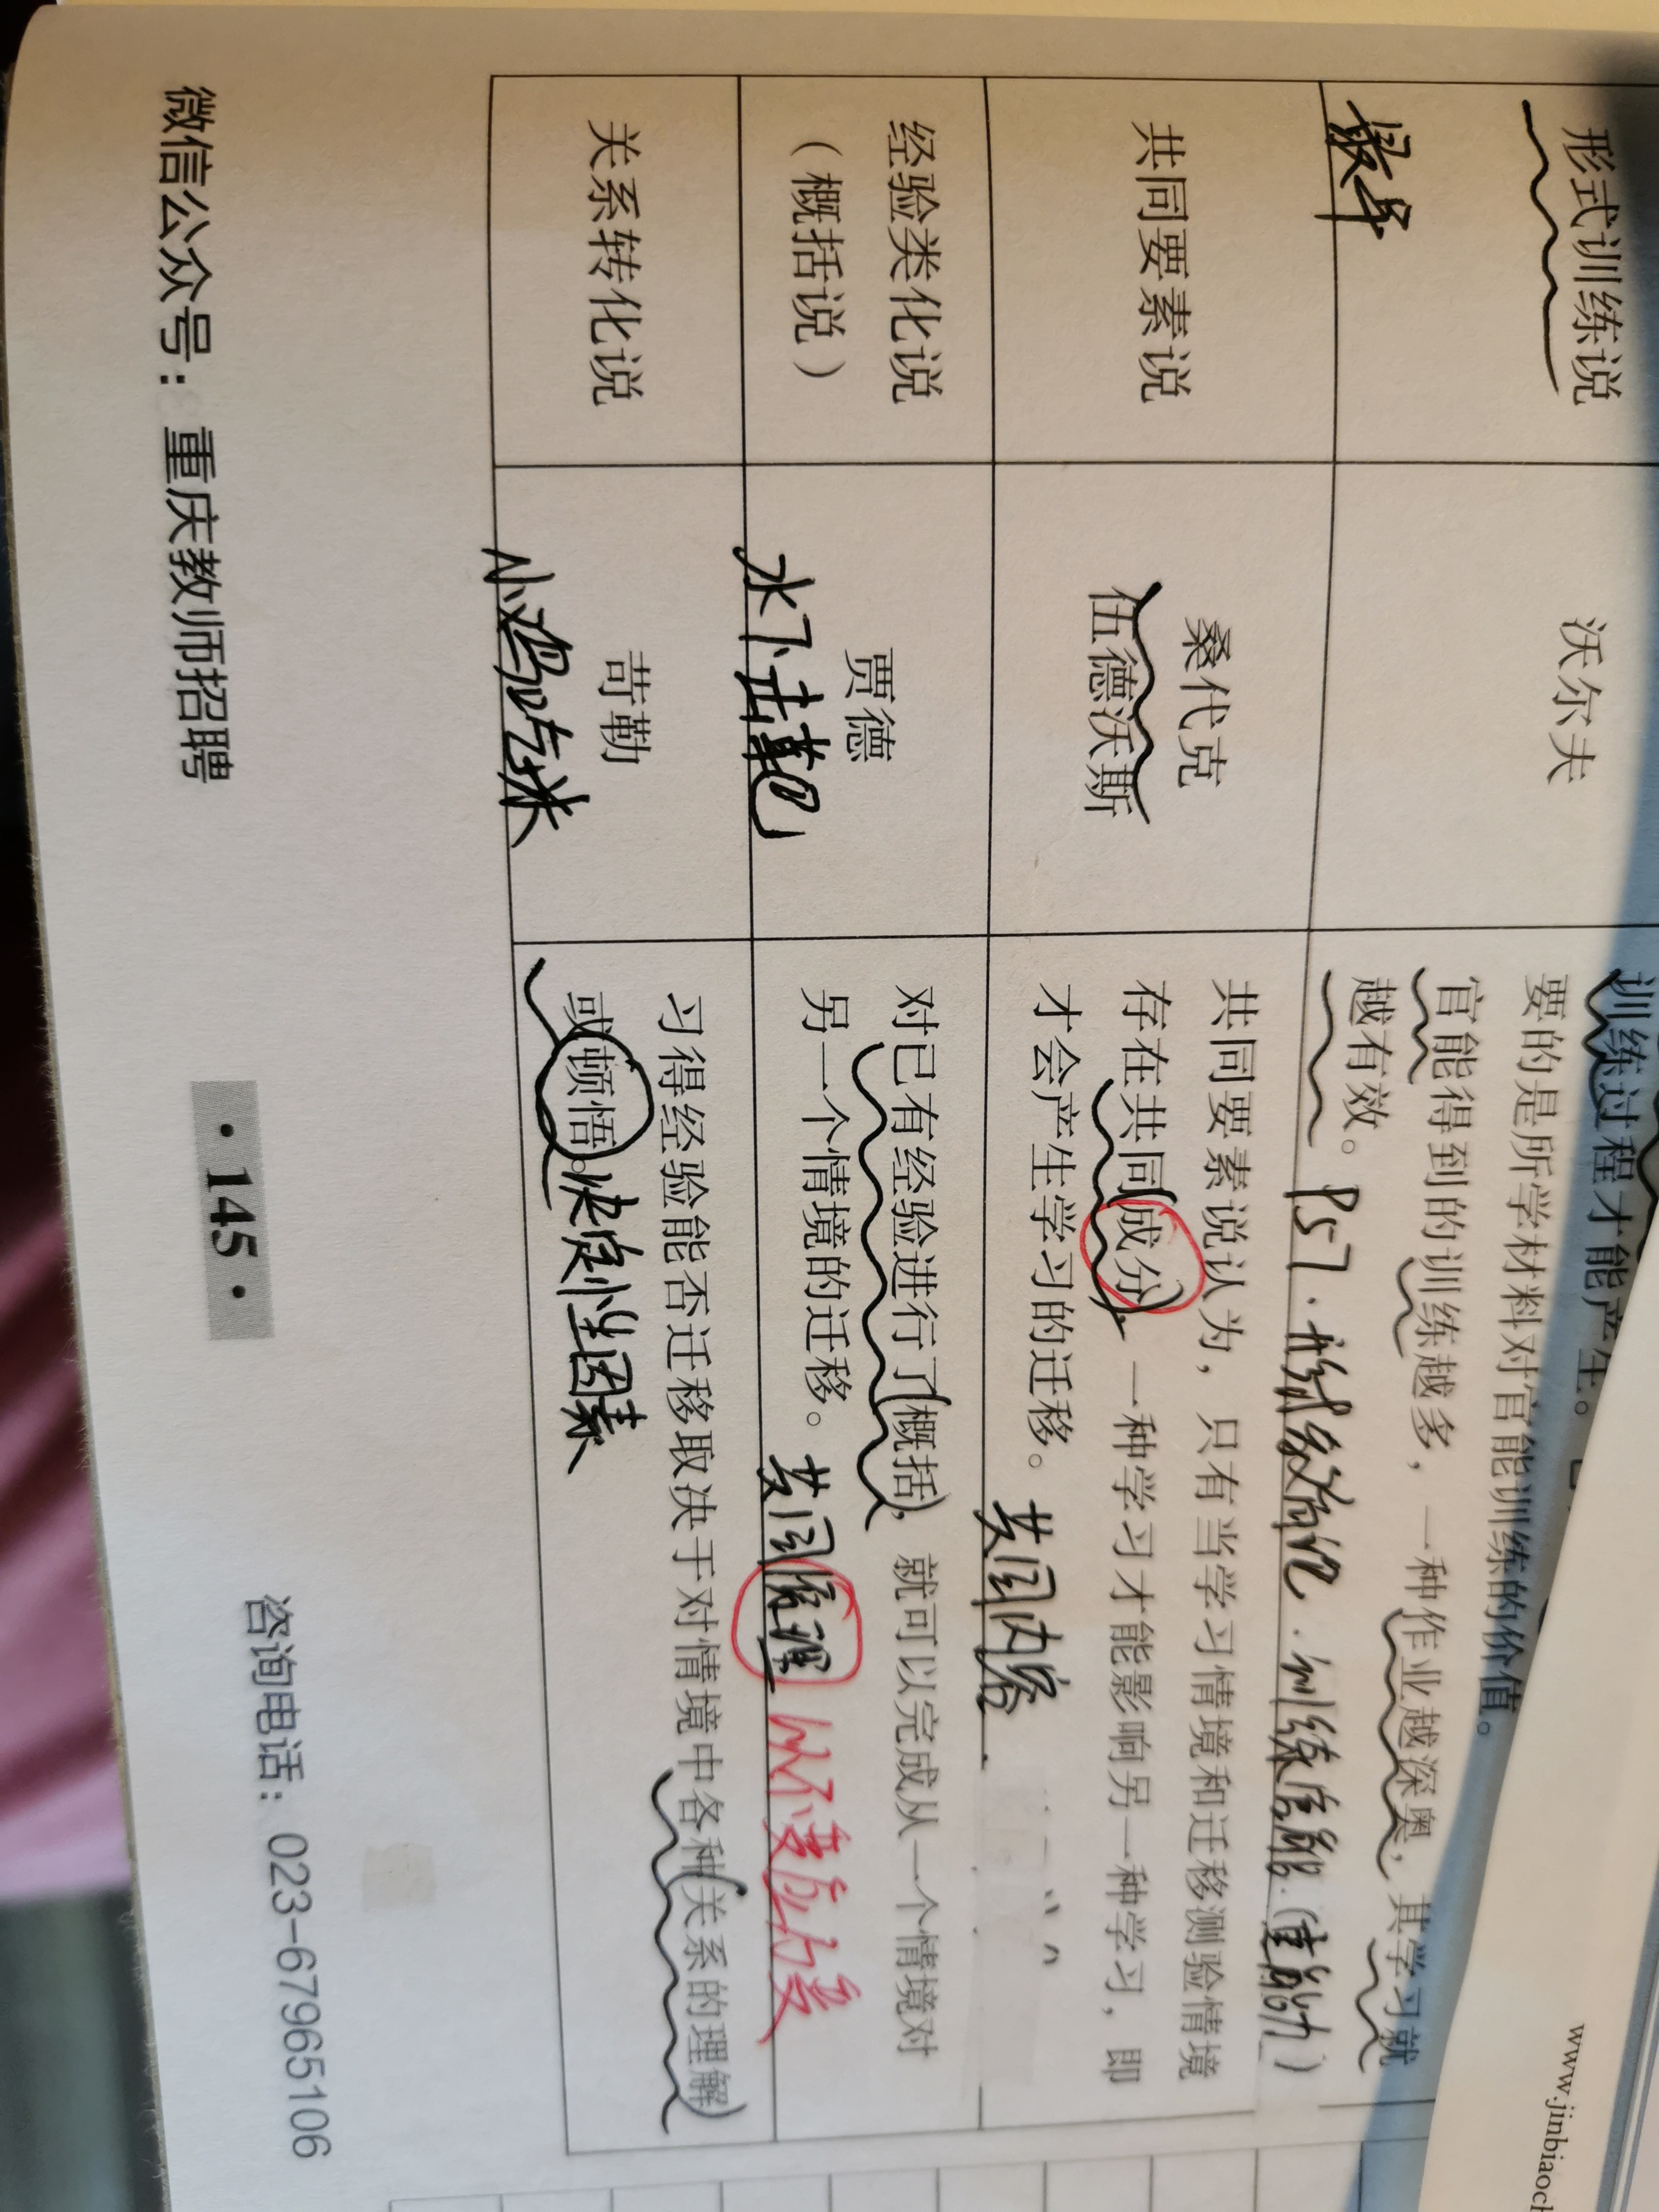 www.jinbiaoch
训练过程才能产生。
要的是所学材料对官能训练的价值。
形式训练说
沃尔夫
官能得到的训练越多，一种作业越深奥，其学习就
越有效。
P57.
训练官能.
共同要素说
桑代克
伍德沃斯
共同要素说认为，只有当学习情境和迁移测验情境
存在共同成分，一种学习才能影响另一种学习，即
才会产生学习的迁移。
共同内容
经验类化说
（概括说）
贾德
水下击靶
对已有经验进行了概括，就可以完成从一个情境对
另一个情境的迁移。
共同原理
关系转化说
苛勒
小鸡吃米
习得经验能否迁移取决于对情境中各种关系的理解
或顿悟。
决定性因素
微信公众号：重庆教师招聘
·145·
咨询电话：023-67965106